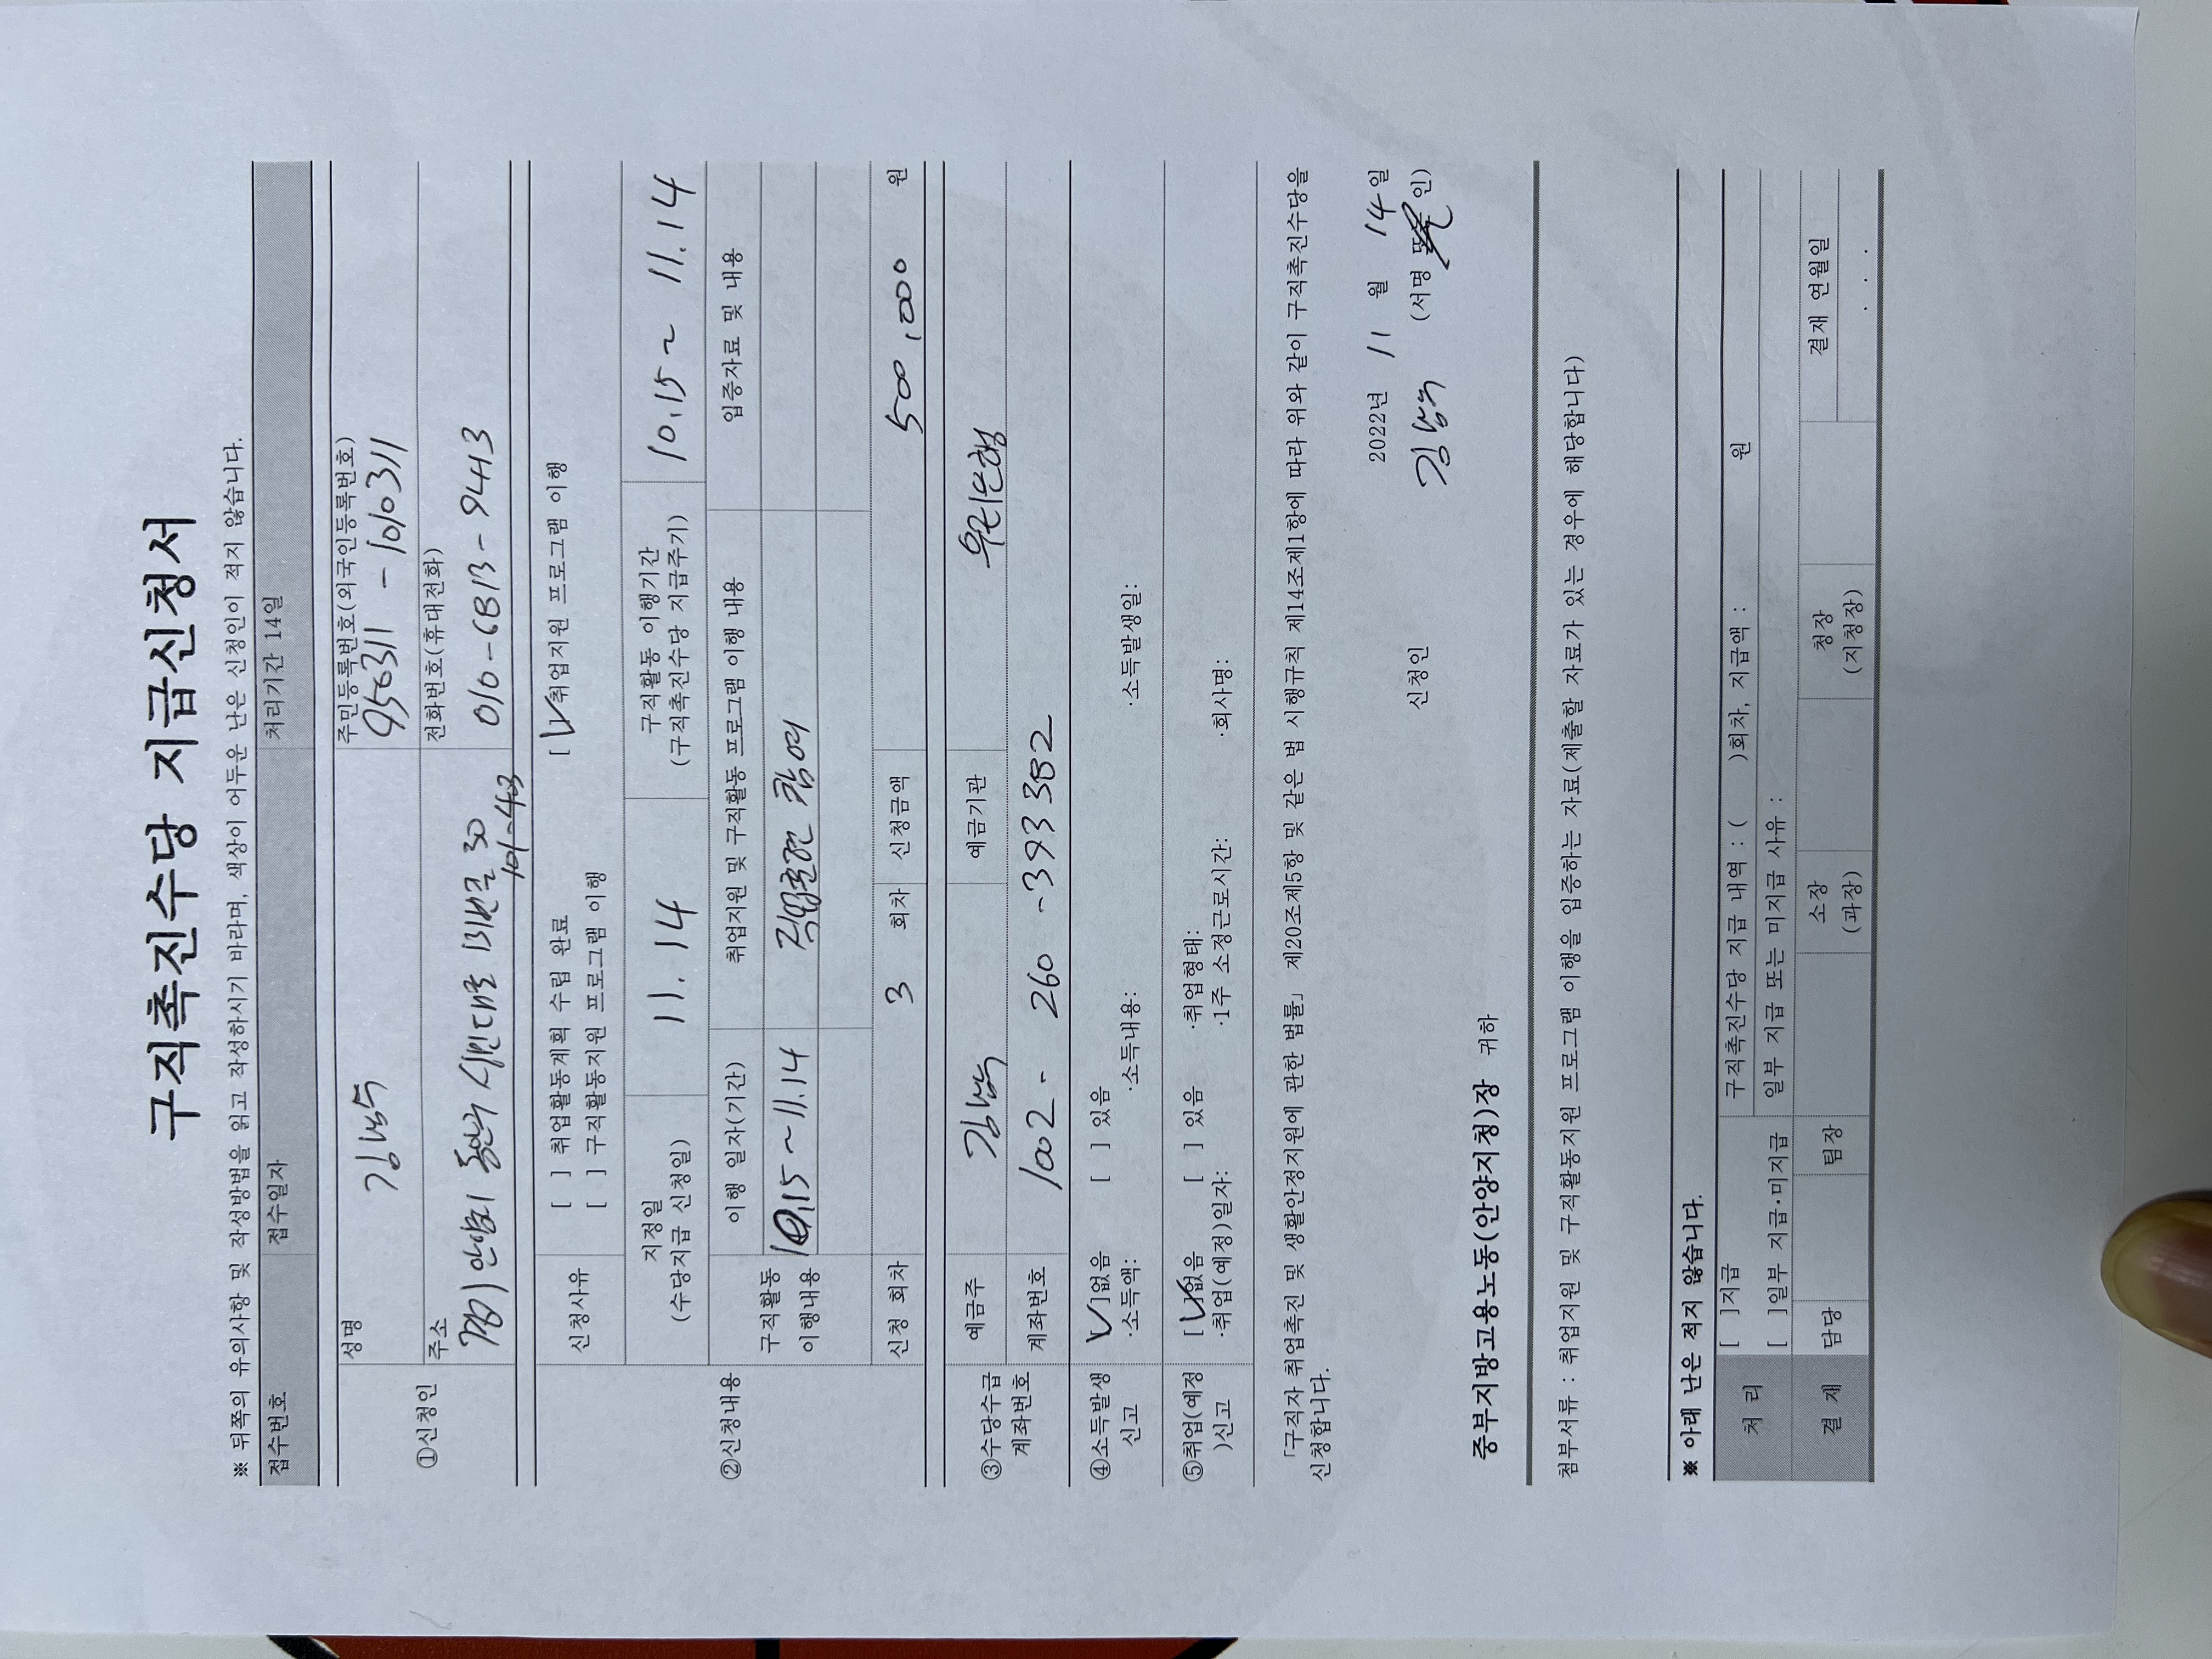 구직촉진수당 지급신청서
※ 뒤쪽의 유의사항 및 작성방법을 읽고 작성하시기 바라며, 색상이 어두운 난은 신청인이 적지 않습니다.
접수번호 접수일자 처리기간 14일
①신청인
성명 김남수
주민등록번호(외국인등록번호)
950311 - 1010311
주소
경기 안양시 동안구 시민대로 131번길 30
101-403
전화번호(휴대전화)
010-6813-9413
②신청내용
신청사유
[ ] 취업활동계획 수립 완료 [V] 취업지원 프로그램 이행
[ ] 구직활동지원 프로그램 이행
지정일
(수당지급 신청일)
11. 14
구직활동 이행기간
(구직촉진수당 지급주기)
10.15 ~ 11.14
구직활동
이행내용
이행 일자(기간) 취업지원 및 구직활동 프로그램 이행 내용 입증자료 및 내용
10.15 ~ 11.14 직업훈련 참여
신청 회차 3 회차 신청금액 500,000 원
③수당수급
계좌번호
예금주 김남수 예금기관 우리은행
계좌번호 1002 - 260 - 393382
④소득발생
신고
[V]없음 [ ] 있음
·소득액: ·소득내용: ·소득발생일:
⑤취업(예정
)신고
[V]없음 [ ] 있음 ·취업형태:
·취업(예정)일자: ·1주 소정근로시간: ·회사명:
「구직자 취업촉진 및 생활안정지원에 관한 법률」 제20조제5항 및 같은 법 시행규칙 제14조제1항에 따라 위와 같이 구직촉진수당을
신청합니다.
2022년 11 월 14 일
신청인 김남수 (서명 또는 인)
중부지방고용노동(안양지청)장 귀하
첨부서류 : 취업지원 및 구직활동지원 프로그램 이행을 입증하는 자료(제출할 자료가 있는 경우에 해당합니다)
※ 아래 난은 적지 않습니다.
처 리
[ ]지급 구직촉진수당 지급 내역 : ( )회차, 지급액 : 원
[ ]일부 지급·미지급 일부 지급 또는 미지급 사유 :
결 재 담당 팀장 소장
(과장)
청장
(지청장)
결재 연월일
. . .